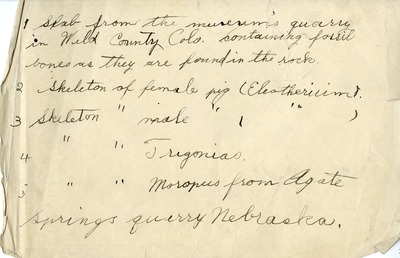 1 Slab from the museum's quarry
in Weld County Colo. containing fossil
bones as they are found in the rock.
2 Skeleton of female pig (Elotherium).
3 Skeleton " male " ( " )
4 " " Trigonias.
5 " " Moropus from Agate
Springs quarry Nebraska.